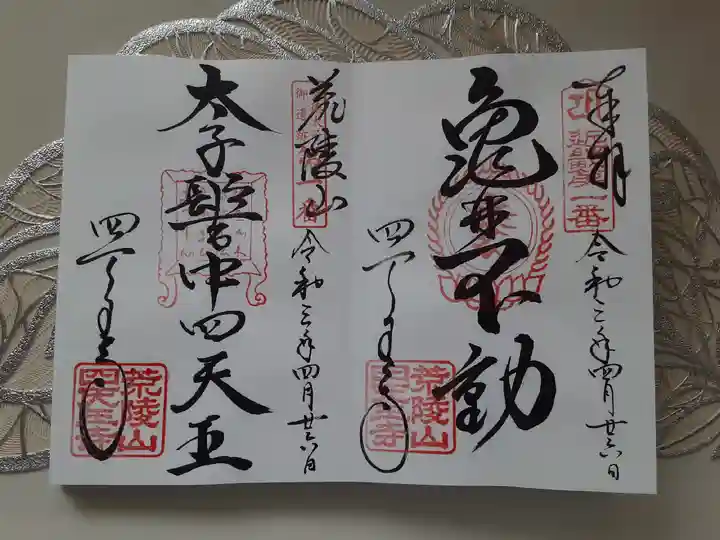 奉拝
近畿三十六不動尊一番
令和三年四月廿六日
亀井不動
四天王寺
荒陵山
四天王寺
荒陵山
令和三年四月廿六日
太子髻中四天王
四天王寺
荒陵山
四天王寺